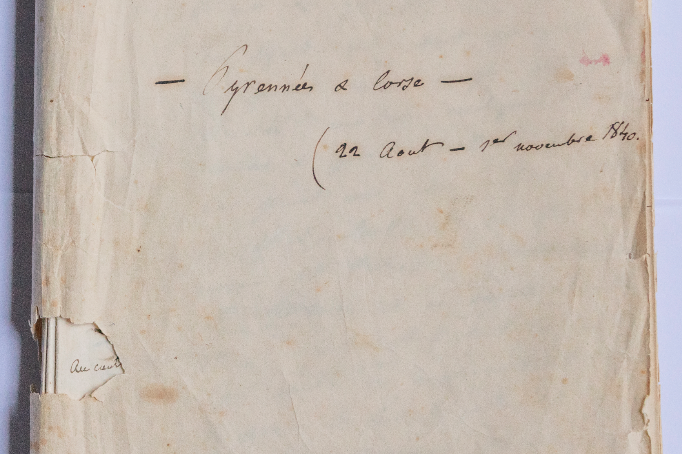 — Pyrennées & Corse —
(22 Aout — 1er novembre 1840.
Au cœur